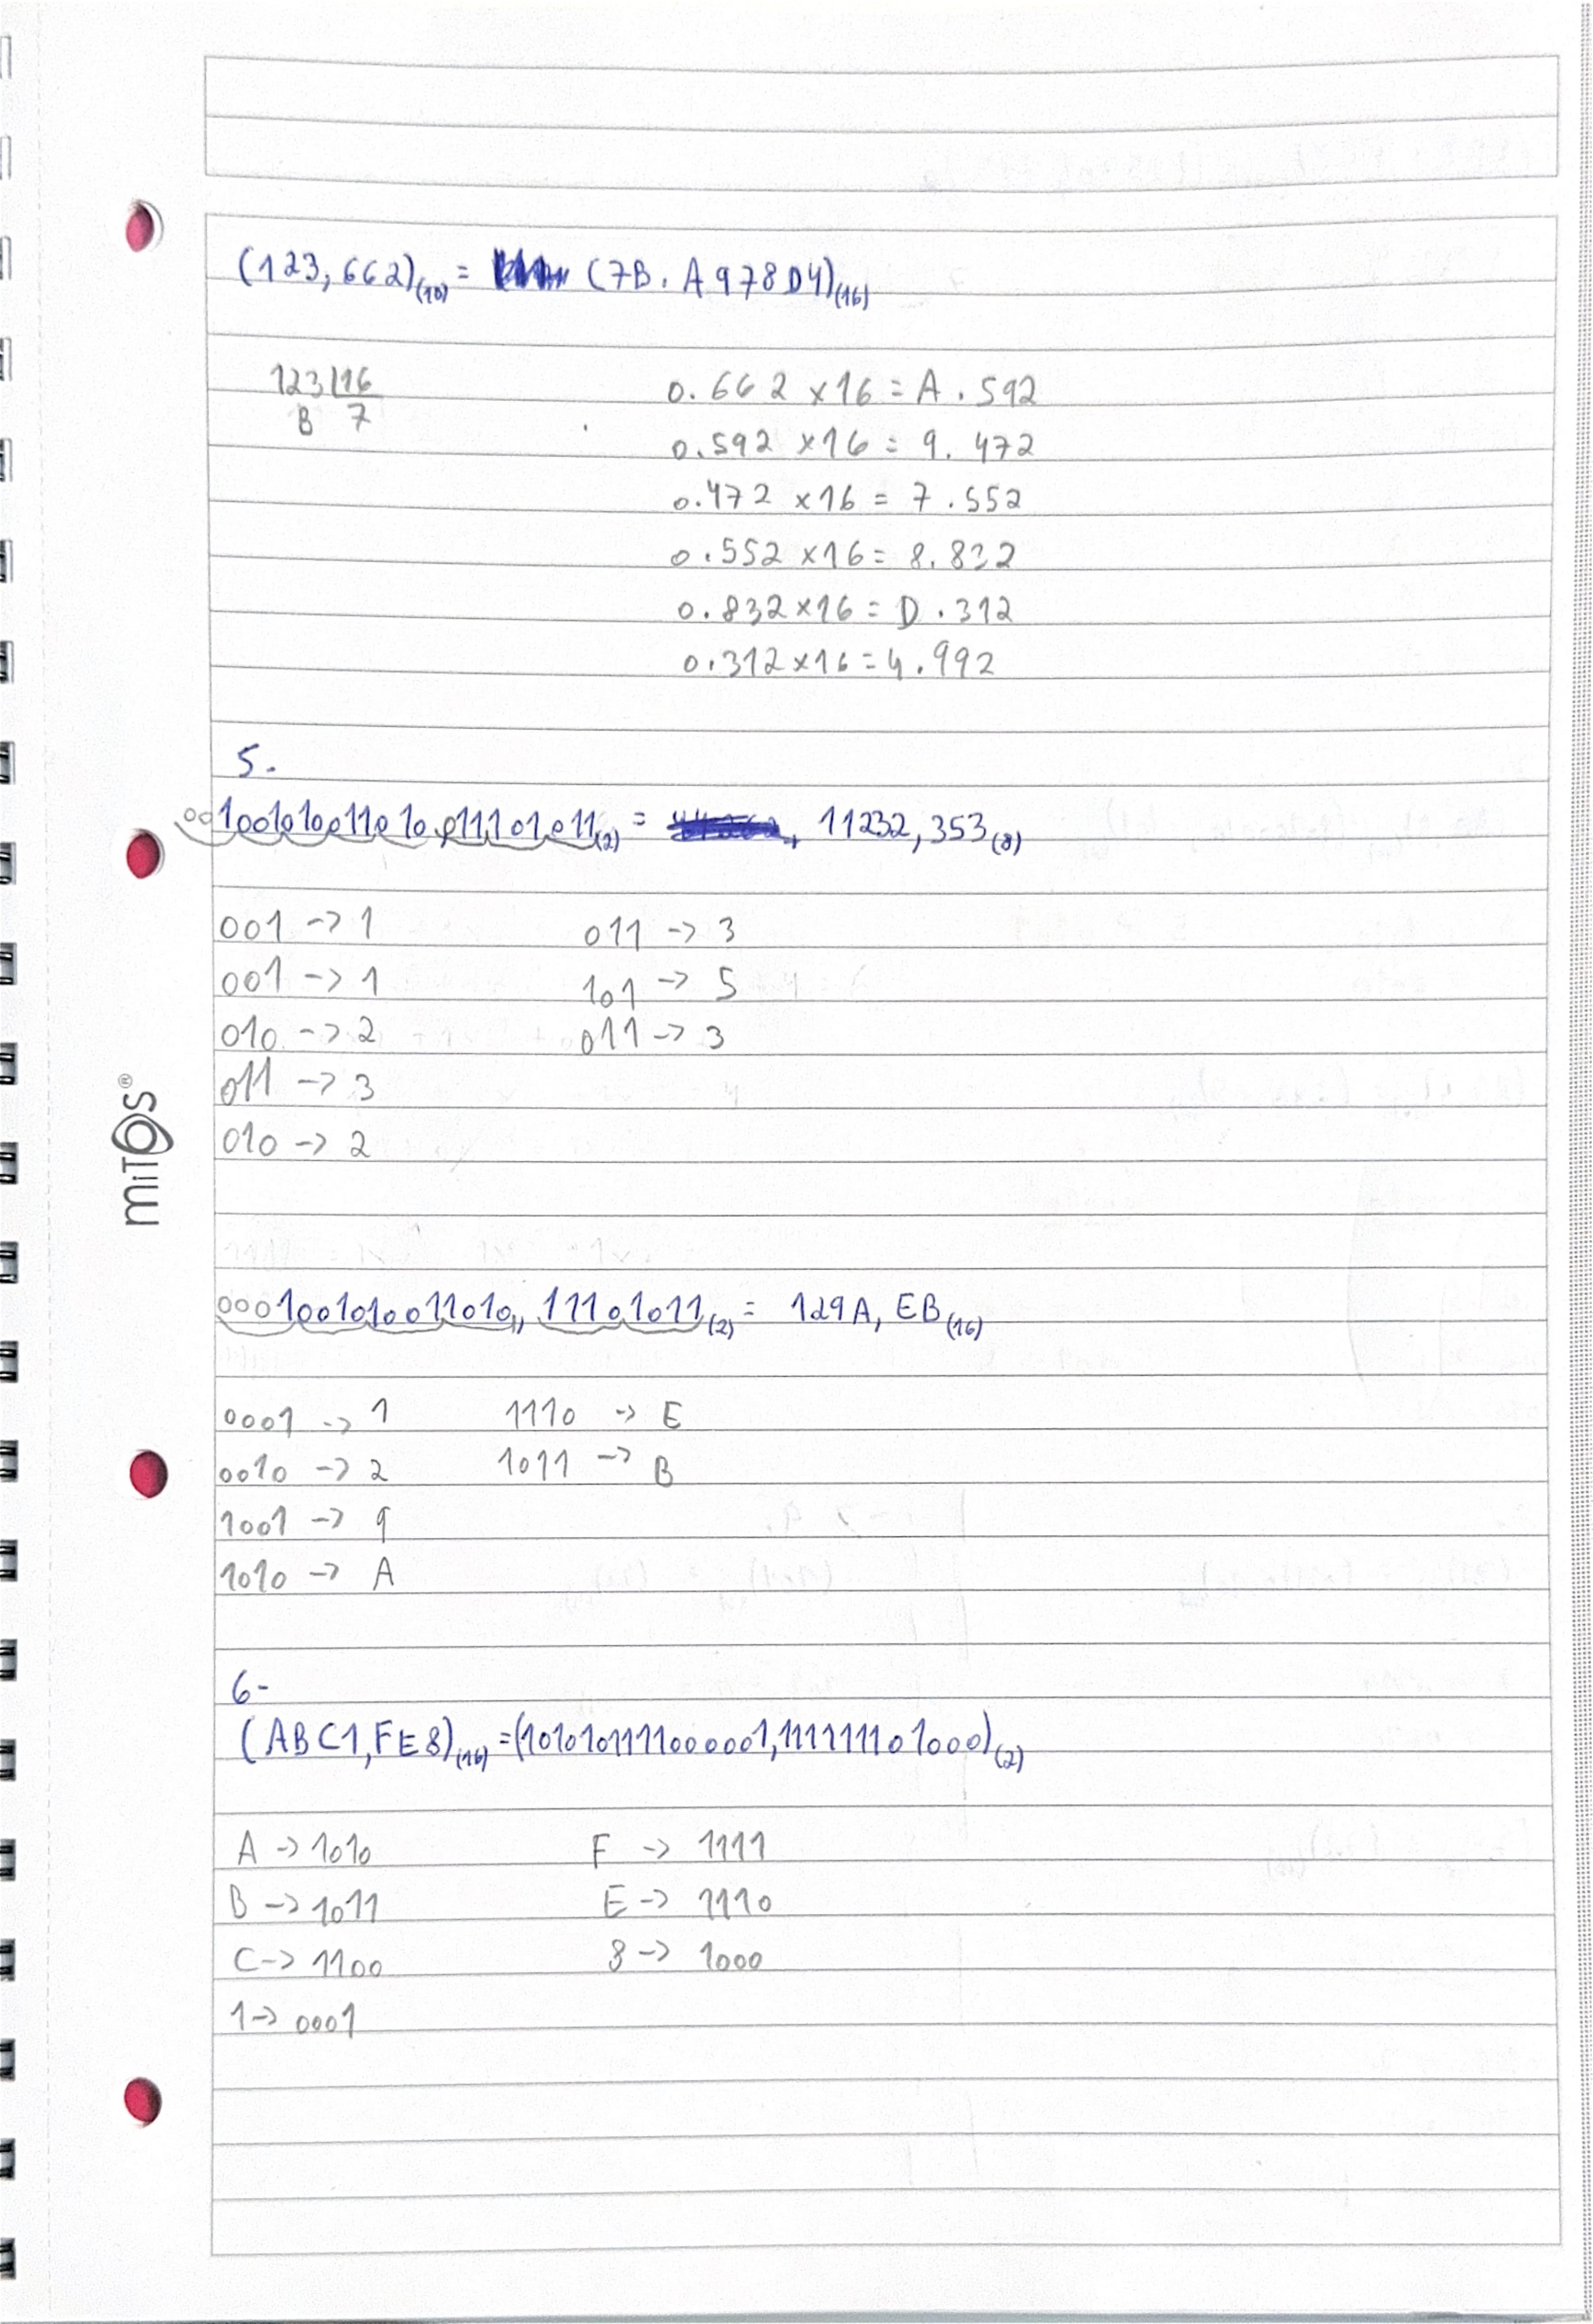 (123,662)(10) = (7B.A978D4)(16)
123|16 0.662 x16 = A.592
B 7
0.592 x16 = 9.472
0.472 x16 = 7.552
0.552 x16 = 8.832
0.832x16 = D.312
0.312x16 = 4.992
5.
001001010011010,011101011(2) = 11232,353(8)
001 -> 1 011 -> 3
001 -> 1 101 -> 5
010 -> 2 011 -> 3
011 -> 3
010 -> 2
0001001010011010,11101011(2) = 129A,EB(16)
0001 -> 1 1110 -> E
0010 -> 2 1011 -> B
1001 -> 9
1010 -> A
6-
(ABC1,FE8)(16) = (1010101111000001,111111101000)(2)
A -> 1010 F -> 1111
B -> 1011 E -> 1110
C -> 1100 8 -> 1000
1 -> 0001
miTOS®